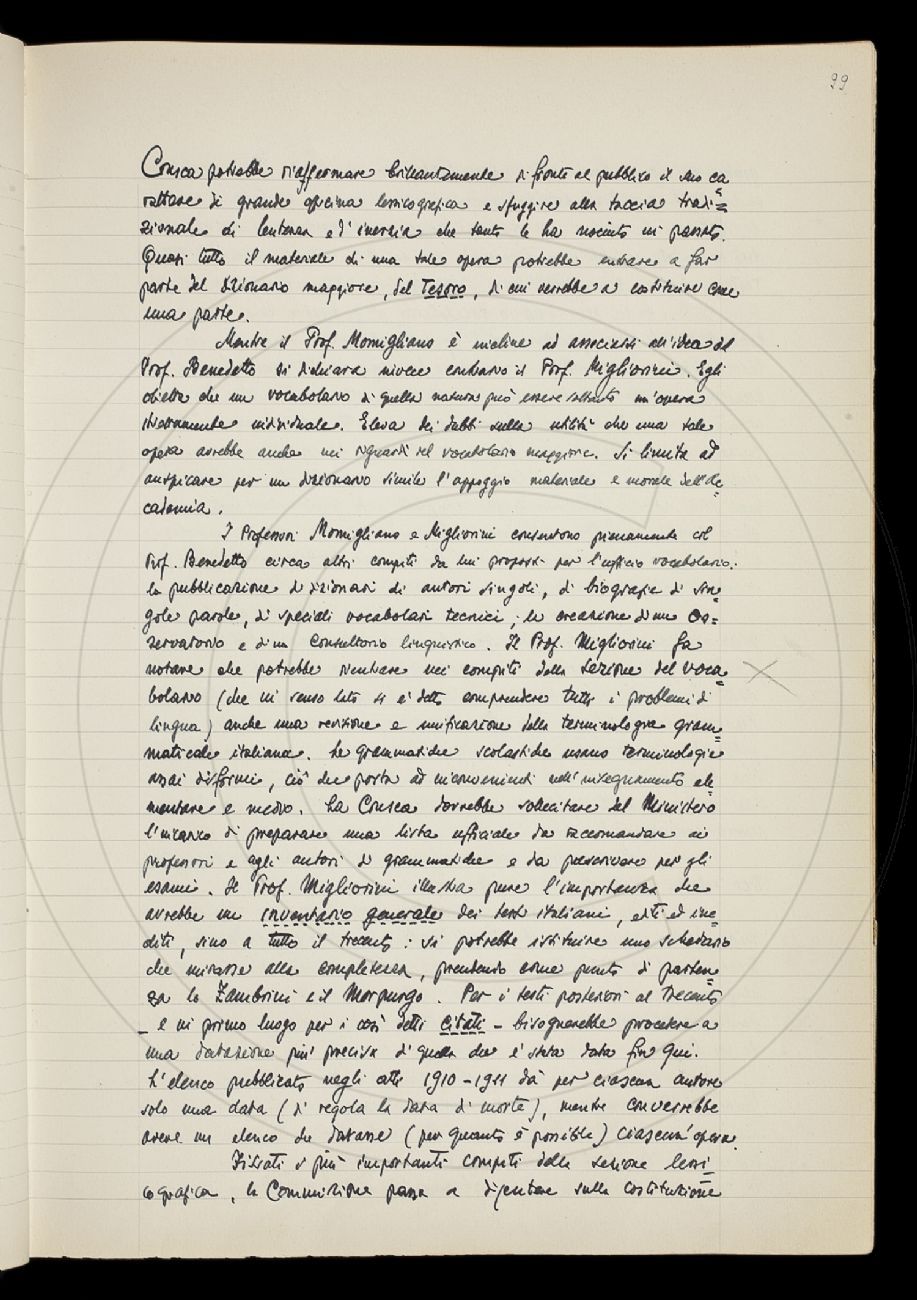 99
Crusca potrebbe riaffermare brillantemente di fronte al pubblico il suo ca
rattere di grande officina lessicografica e sfuggire alla taccia tradi=
zionale di lentezza e d'inerzia che tanto le ha nociuto in passato.
Quasi tutto il materiale di una tale opera potrebbe entrare a far
parte del dizionario maggiore, del Tesoro, di cui verrebbe a costituire come
una parte.
Mentre il Prof. Momigliano è incline ad associarsi all'idea del
Prof. Benedetto si dichiara invece contrario il Prof. Migliorini. Egli
obietta che un vocabolario di quella natura può essere soltanto un'opera
strettamente individuale. Eleva dei dubbi sulla utilità che una tale
opera avrebbe anche nei riguardi del vocabolario maggiore. Si limita ad
auspicare per un dizionario simile l'appoggio materiale e morale dell'Ac=
cademia.
I Professori Momigliano e Migliorini consentono pienamente col
Prof. Benedetto circa altri compiti da lui proposti per l'ufficio vocabolario:
la pubblicazione di dizionari di autori singoli, di biografie di sin=
gole parole, di speciali vocabolari tecnici; la creazione d'un Os=
servatorio e d'un Consultorio linguistico. Il Prof. Migliorini fa
notare che potrebbe rientrare nei compiti della sezione del voca=
bolario (che in senso lato si è detto comprendere tutti i problemi di
lingua) anche una revisione e unificazione della terminologia gram=
maticale italiana. Le grammatiche scolastiche usano terminologie
assai difformi, ciò che porta ad inconvenienti nell'insegnamento ele=
mentare e medio. La Crusca dovrebbe sollecitare dal Ministero
l'incarico di preparare una lista ufficiale da raccomandare ai
professori e agli autori di grammatiche e da prescrivere per gli
esami. Il Prof. Migliorini illustra pure l'importanza che
avrebbe un inventario generale dei testi italiani, editi ed ine=
diti, sino a tutto il trecento: si potrebbe istituire uno schedario
che mirasse alla completezza, prendendo come punto di parten=
za lo Zambrini e il Morpurgo. Per i testi posteriori al Trecento
– e in primo luogo per i così detti citati – bisognerebbe procedere a
una datazione più precisa di quella che è stata data fin qui.
L'elenco pubblicato negli atti 1910-1911 dà per ciascun autore
solo una data (di regola la data di morte), mentre converrebbe
avere un elenco che datasse (per quanto è possibile) ciascun'opera.
Fissati i più importanti compiti della sezione lessi=
cografica, la Commissione passa a discutere sulla costituzione